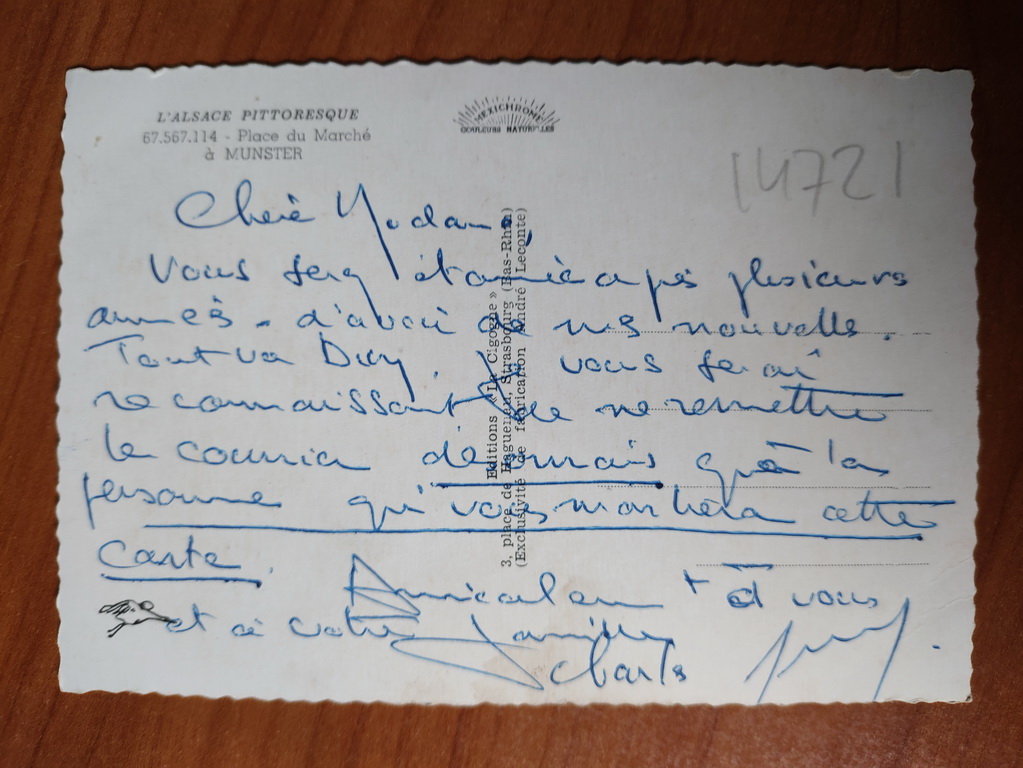 L'ALSACE PITTORESQUE
67.567.114 - Place du Marché
à MUNSTER
MEXICHROME
COULEURS NATURELLES
14721
Chère Madame,
Vous serez étonnée après plusieurs
années - d'avoir de mes nouvelles.
Tout va Bien. Je vous serai
reconnaissant de ne remettre
le courrier désormais qu'à la
personne qui vous montrera cette
carte.
Amicalement à vous
et à votre famille
Charles
Editions « La Cigogne »
3, place de Haguenau, Strasbourg (Bas-Rhin)
(Exclusivité de fabrication André Leconte)